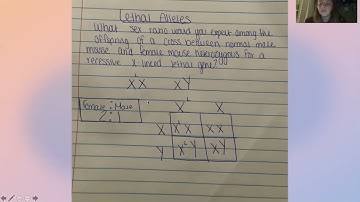 Lethal Alleles
What sex ratio would you expect among the
offspring of a cross between normal male
mouse and female mouse heterozygous for a
recessive X-linked lethal gene?
XᴸX XY
Xᴸ X
Female : Male
2:1
X XᴸX XX
Y XᴸY XY